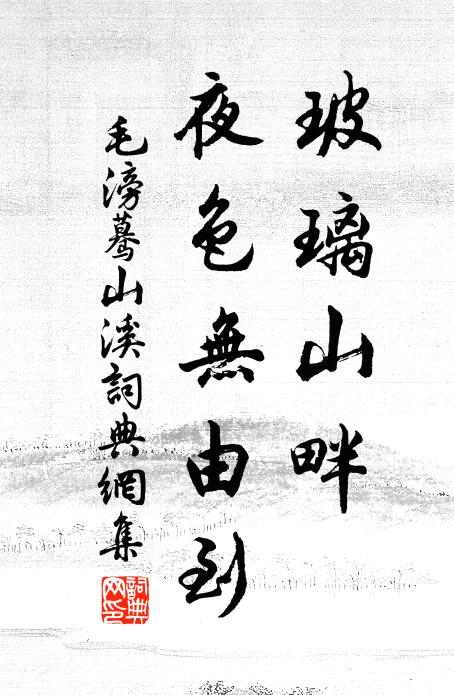 玻璃山畔
夜色無由到
毛滂驀山溪詞典網集
詞典網印